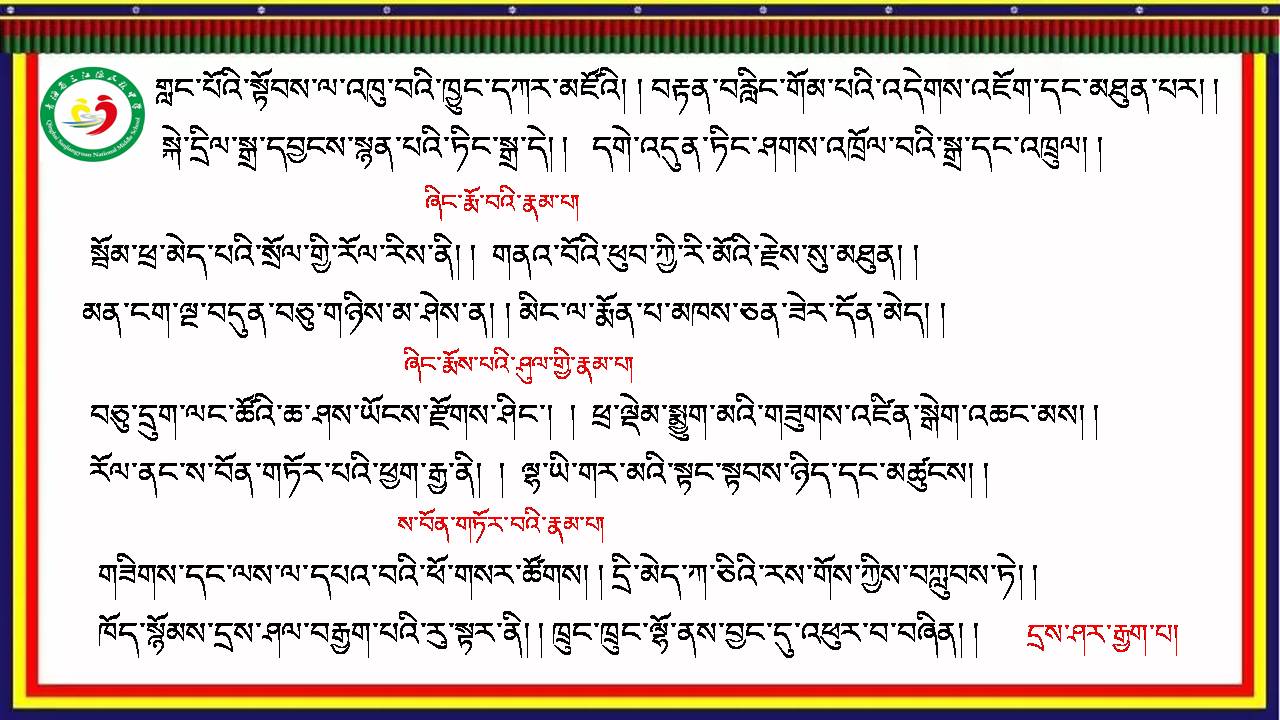 གླང་པོའི་སྟོབས་ལ་འཁུ་བའི་ཁྱུང་དཀར་མཛོའི། །བརྟན་བརླིང་གོམ་པའི་འདེགས་འཇོག་དང་མཐུན་པར། །
སྐེ་དྲིལ་སྒྲ་དབྱངས་སྙན་པའི་ཏིང་སྒྲ་དེ། ། དགེ་འདུན་ཏིང་ཤགས་འཁྲོལ་བའི་སྒྲ་དང་འཁྲུལ། །
ཞིང་རྨོ་བའི་རྣམ་པ།
སྦོམ་ཕྲ་མེད་པའི་སྲོལ་གྱི་རོལ་རིས་ནི། ། གནའ་བོའི་ཕུབ་ཀྱི་རི་མོའི་རྗེས་སུ་མཐུན། །
མན་ངག་ལྔ་བདུན་བཅུ་གཉིས་མ་ཤེས་ན། །མིང་ལ་རྨོན་པ་མཁས་ཅན་ཟེར་དོན་མེད། །
ཞིང་རྨོས་པའི་ཤུལ་གྱི་རྣམ་པ།
བཅུ་དྲུག་ལང་ཚོའི་ཆ་ཤས་ཡོངས་རྫོགས་ཤིང་། ། ཕྲ་ལྡེམ་སྨྱུག་མའི་གཟུགས་འཛིན་སྒེག་འཆང་མས། །
རོལ་ནང་ས་བོན་གཏོར་པའི་ཕྱག་རྒྱ་ནི། ། ལྷ་ཡི་གར་མའི་སྟང་སྟབས་ཉིད་དང་མཚུངས། །
ས་བོན་གཏོར་བའི་རྣམ་པ།
གཟིགས་དང་ལས་ལ་དཔའ་བའི་ཕོ་གསར་ཚོགས། །དྲི་མེད་ཀ་ཅིའི་རས་གོས་ཀྱིས་བཀླུབས་ཏེ། །
ཁོད་སྙོམས་དྲས་ཤལ་བརྒྱག་པའི་རུ་སྟར་ནི། །ཁྲུང་ཁྲུང་ལྷོ་ནས་བྱང་དུ་འཕུར་བ་བཞིན། ། དྲས་ཤར་རྒྱག་པ།